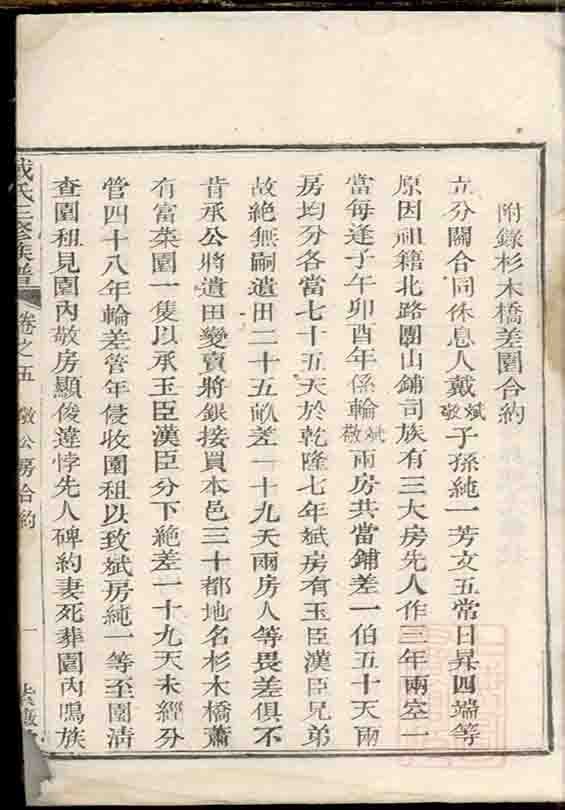 附錄杉木橋差園合約
立分關合同休息人戴斌敬子孫純一芳文五常日昇四端等
原因祖籍北路團山鋪司族有三大房先人作三年兩空一
當每逢子午卯酉年係輪斌敬兩房共當鋪差一伯五十天兩
房均分各當七十五天於乾隆七年斌房有玉臣漢臣兄弟
故絶無嗣遺田二十五畝差一十九天兩房人等畏差俱不
肯承公將遺田變賣將銀接買本邑三十都地名杉木橋蕭
有富柴園一隻以承玉臣漢臣分下絶差一十九天未經分
管四十八年輪差管年侵收園租以致斌房純一等至園清
查園租見園內敬房顯俊違悖先人碑約妻死葬園內鳴族
氏三修族譜
卷之五
敬公房合約
一